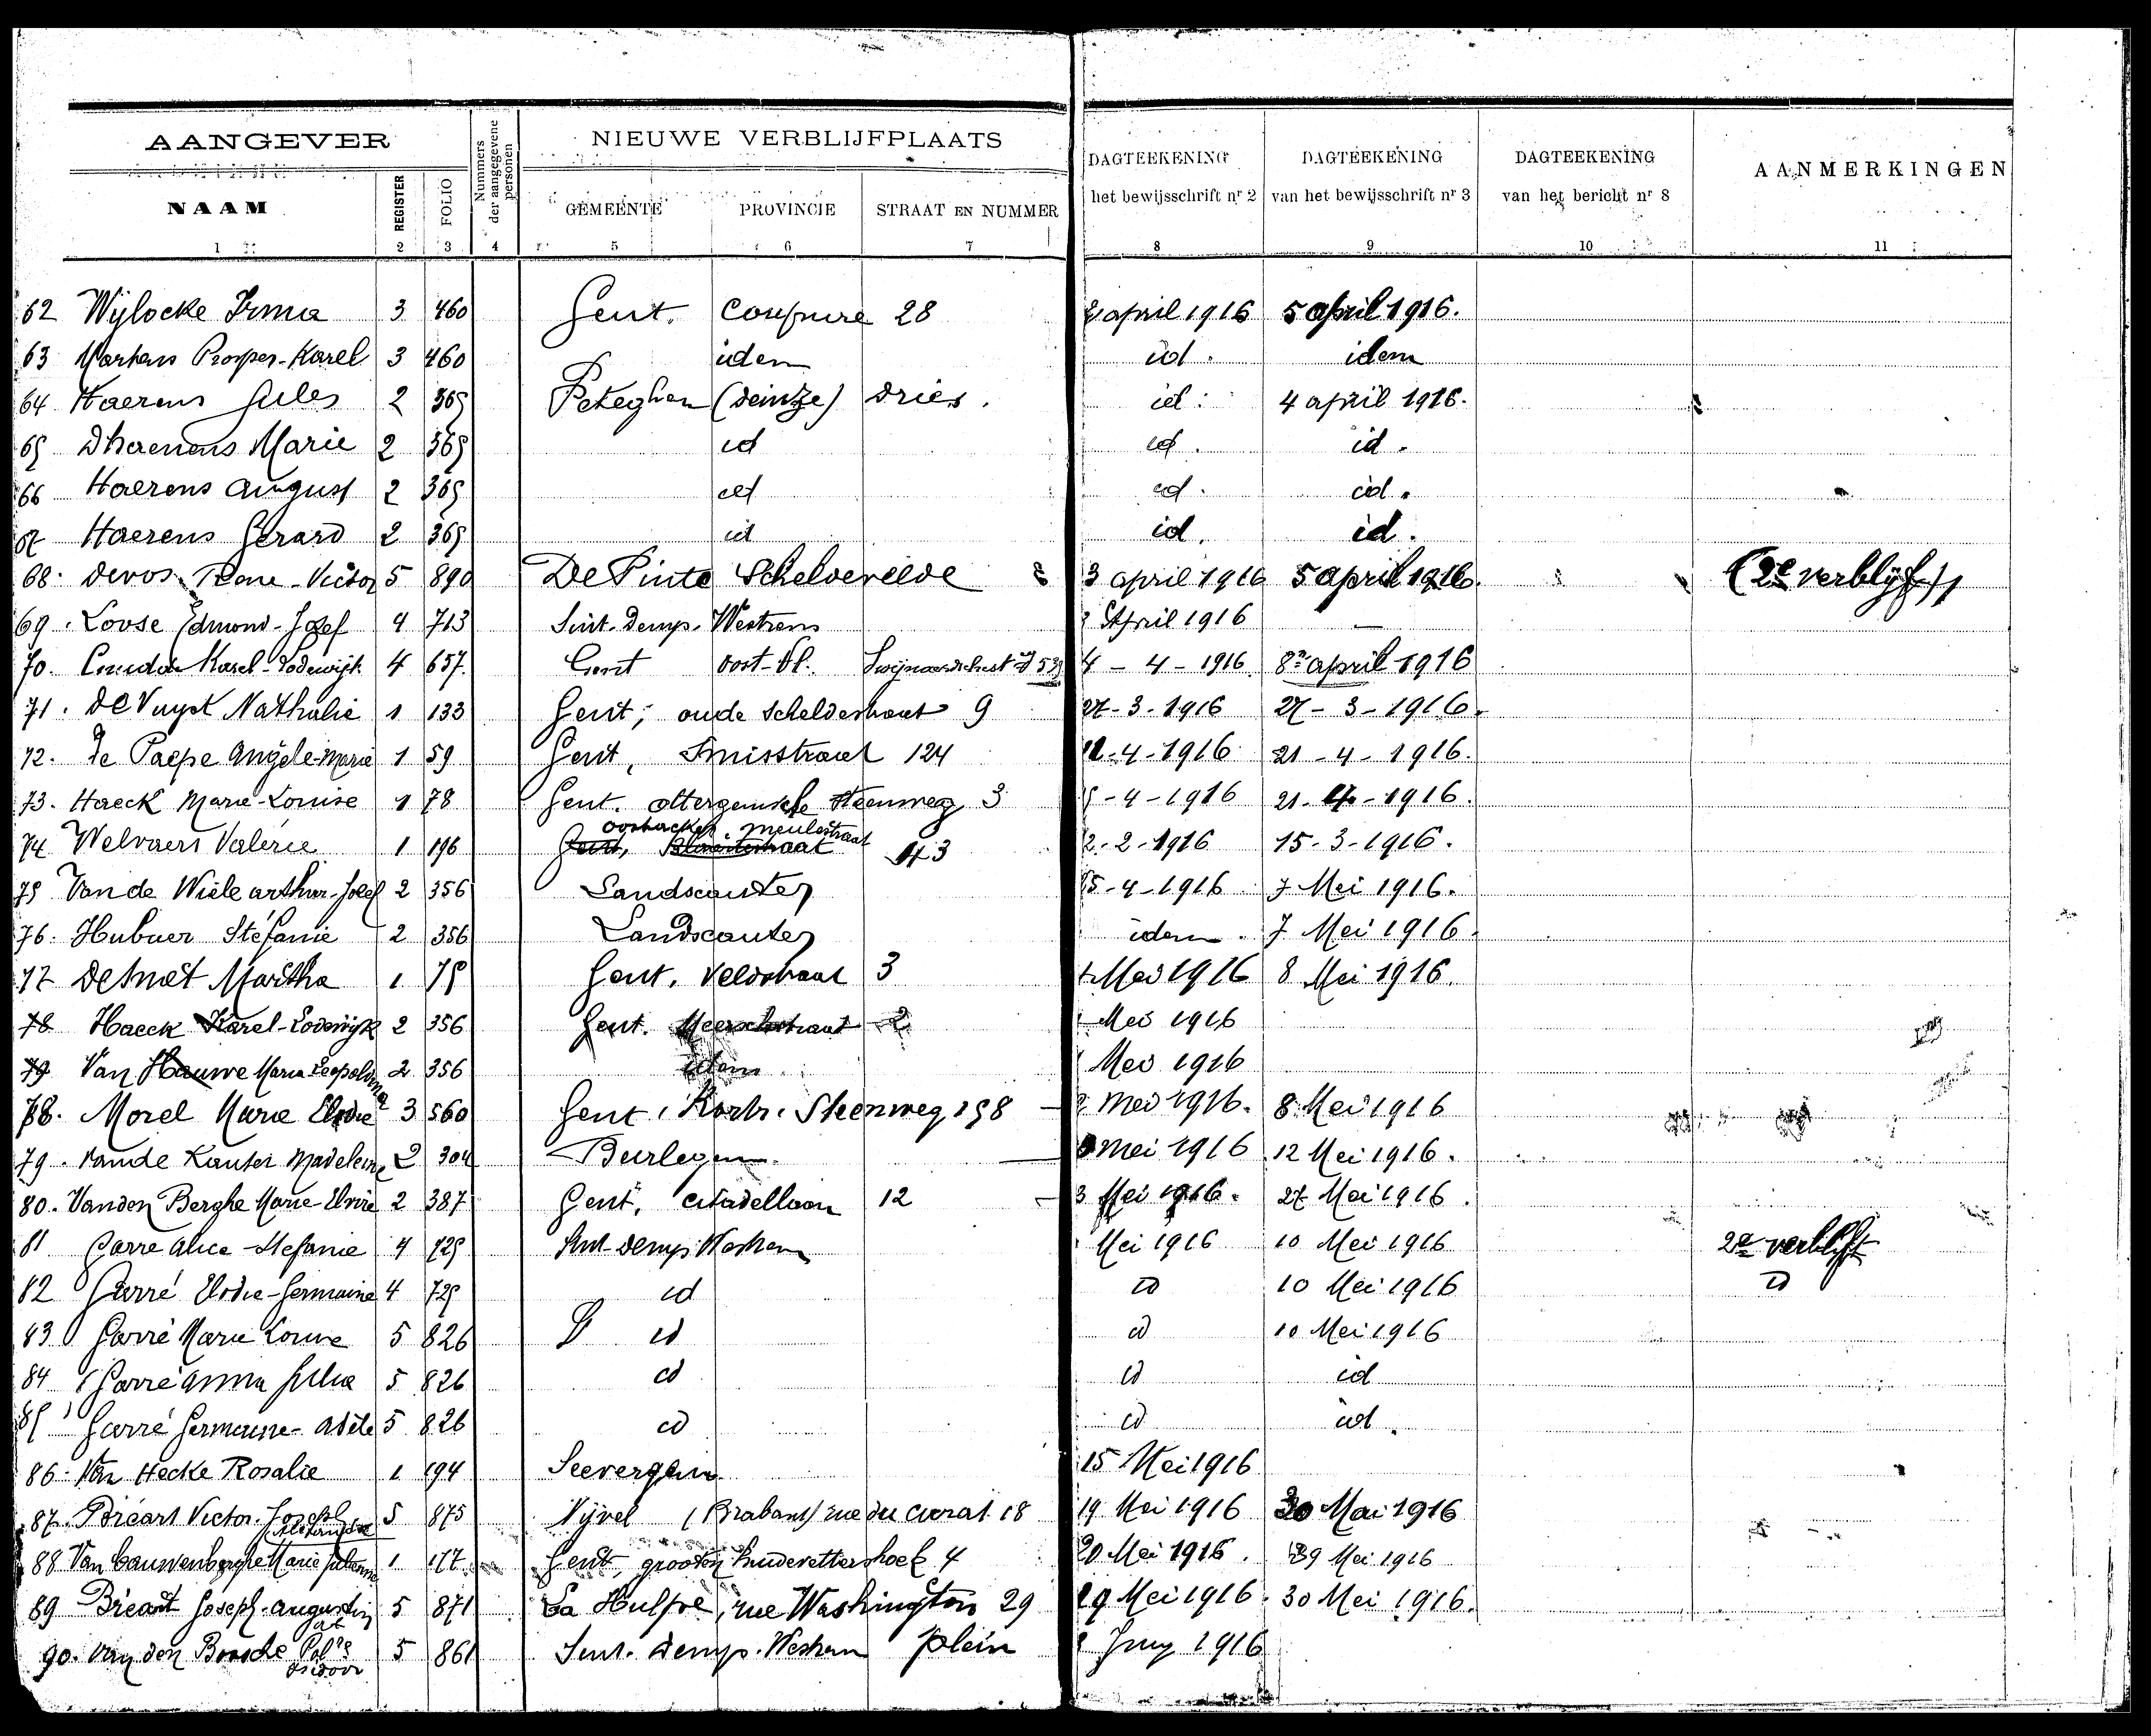 AANGEVER
Nummers der aangegevene personen
NIEUWE VERBLIJFPLAATS
DAGTEEKENING het bewijsschrift nr 2
DAGTEEKENING van het bewijsschrift nr 3
DAGTEEKENING van het bericht nr 8
AANMERKINGEN
NAAM REGISTER FOLIO GEMEENTE PROVINCIE STRAAT EN NUMMER
1 2 3 4 5 6 7 8 9 10 11
62 Wylocke Irma 3 460 Gent. Coupure 28 april 1916 5 april 1916.
63 Martens Prosper-Karel 3 460 idem id. idem
64 Haerens Jules 2 365 Peteghem (Deinze) Dries. id. 4 april 1916.
65 Dhaenens Marie 2 365 id id. id.
66 Haerens August 2 365 id id. id.
67 Haerens Gerard 2 365 id id. id.
68. Devos Rene-Victor 5 890 De Pinte Schelderode 3 april 1916 5 april 1916. (2e verblijf)
69. Loose Edmond-Jozef 4 713 Sint-Denys-Westrem April 1916 —
70. Karel-Lodewijk 4 657. Gent Oost-Vl. 4-4-1916 8n april 1916
71. De Vuyst Nathalie 1 133 Gent, oude Scheldestraat 9 27-3-1916 27-3-1916.
72. De Paepe Angele-Marie 1 59 Gent, 124 -4-1916 21-4-1916.
73. Haeck Marie-Louise 1 78 Gent. ottergemsche steenweg 3 -4-1916 21-4-1916.
74 Welvaert Valerie 1 196 Gent, oostacker. meulestraat 43 2-2-1916 15-3-1916.
75 Van de Wiele arthur-Jozef 2 356 Landscauter 5-4-1916 7 Mei 1916.
76. Hubner Stéfanie 2 356 Landscauter idem. 7 Mei 1916.
77 De Smet Martha 1 75 Gent, Veldstraat 3 Mei 1916 8 Mei 1916.
78 Haeck Karel-Lodewijk 2 356 Gent. Meerschstraat 2 Mei 1916
79 Van Hauwe Maria Leopoldina 2 356 idem Mei 1916
78. Morel Marie Elodie 3 560 Gent, Kortr. Steenweg 198 Mei 1916. 8 Mei 1916
79. Vande Kauter Madeleine 2 304 Beirlegem. mei 1916 12 Mei 1916.
80. Vanden Berghe Marie-Elvire 2 387 Gent, citadellaan 12 3 Mei 1916. 27 Mei 1916.
81 Garré Alice-Stefanie 4 729 Sint Denys Westrem Mei 1916 10 Mei 1916 2e verblijf
82 Garré Elodie-Germaine 4 729 id id 10 Mei 1916 id
83 Garré Marie Louise 5 826 id id 10 Mei 1916
84 Garré Anna Julia 5 826 id id id
85 Garré Germaine-Adele 5 826 id id id.
86. Van Hecke Rosalie 1 194 Seevergem 15 Mei 1916
87. Bréart Victor-Joseph Alexandre 5 875 Nijvel (Brabant) rue du curat 18 19 Mei 1916 30 Mai 1916
88 Van Cauwenberghe Marie Julienne 1 177 Gent, grooten huidevettershoek 4 20 Mei 1916. 29 Mei 1916
89 Bréart Joseph-augustin 5 871 La Hulpe, rue Washington 29 19 Mei 1916. 30 Mei 1916.
90. Van den Bossche Isidoor 5 861 Sint. Denys. Westrem plein Juny 1916